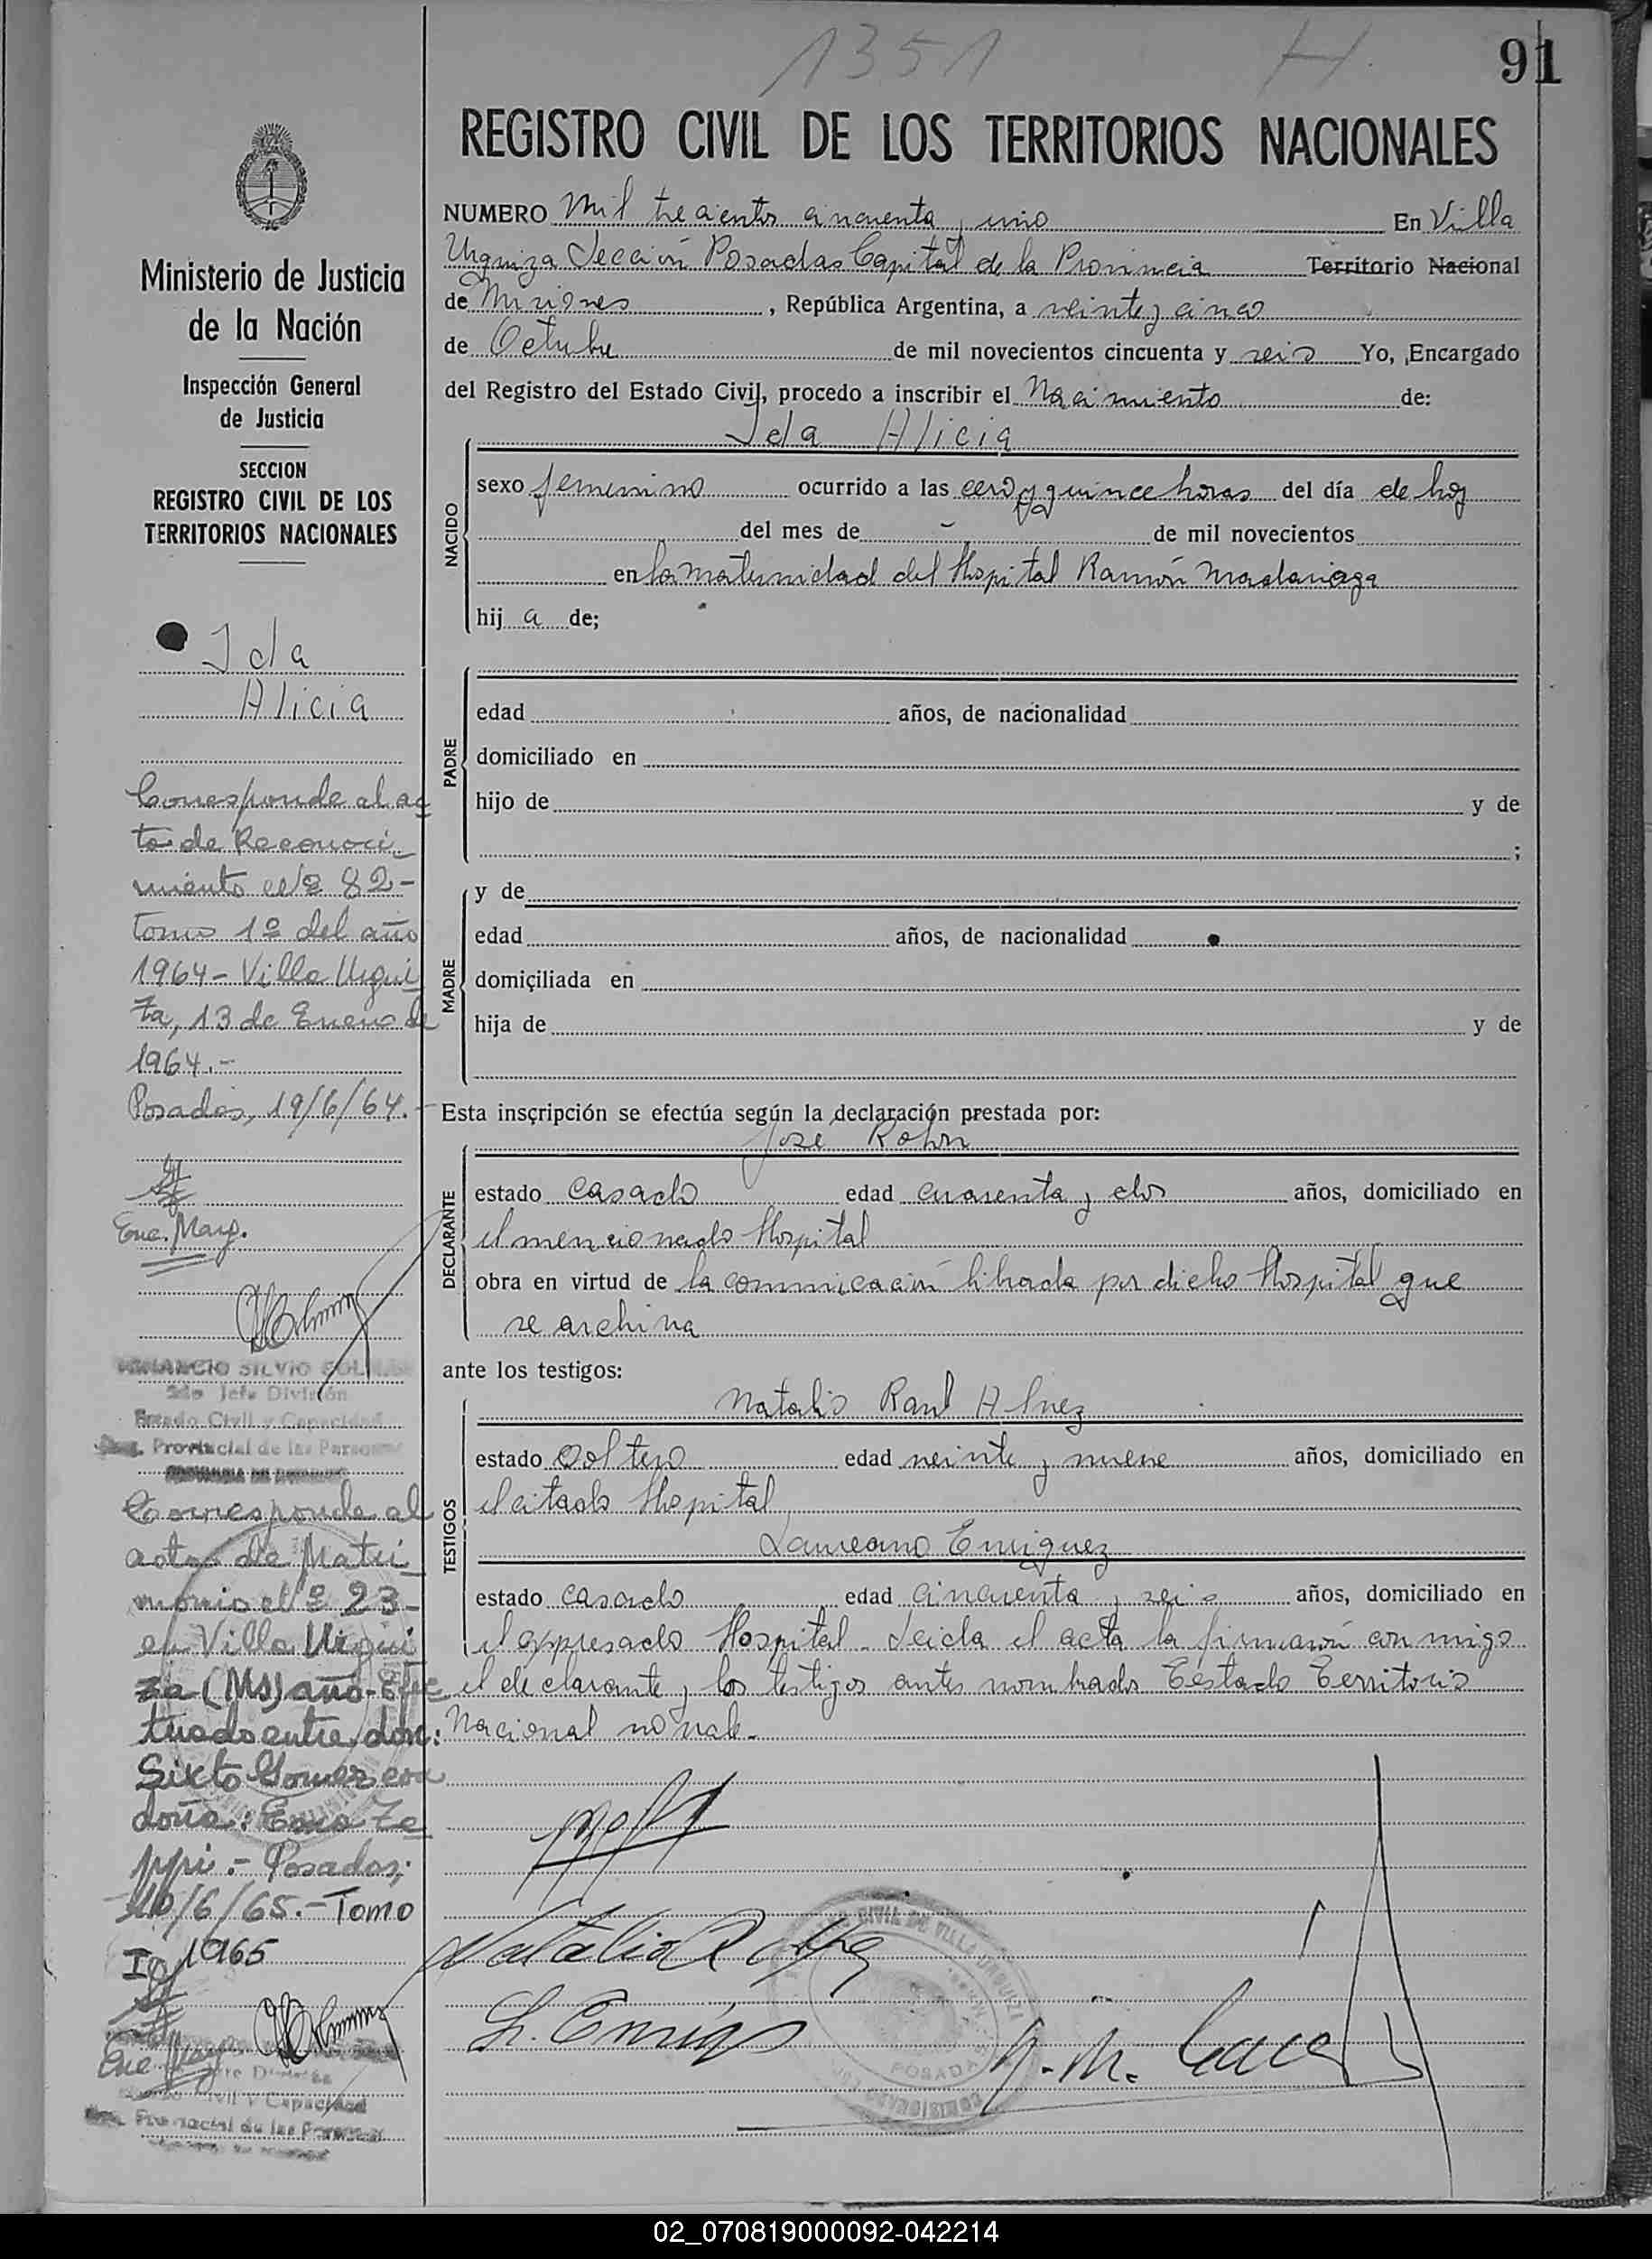 1351 H.
91
REGISTRO CIVIL DE LOS TERRITORIOS NACIONALES
NUMERO Mil trecientos cincuenta y uno En Villa
Urquiza Sección Posadas Capital de la Provincia Territorio Nacional
de Misiones, República Argentina, a veinte y cinco
de Octubre de mil novecientos cincuenta y seis Yo, Encargado
del Registro del Estado Civil, procedo a inscribir el Nacimiento de:
Ida Alicia
NACIDO
sexo femenino ocurrido a las cero y quince horas del día de hoy
del mes de - de mil novecientos
en la maternidad del Hospital Ramón Madariaga
hij a de;
PADRE
edad años, de nacionalidad
domiciliado en
hijo de y de
;
MADRE
y de
edad años, de nacionalidad
domiciliada en
hija de y de
Esta inscripción se efectúa según la declaración prestada por:
José Rohn
DECLARANTE
estado casado edad cuarenta y dos años, domiciliado en
el mencionado Hospital
obra en virtud de la comunicación librada por dicho Hospital que
se archiva
ante los testigos:
Natalio Raul
TESTIGOS
estado Soltero edad veinte y nueve años, domiciliado en
el citado Hospital
Laureano Enriquez
estado casado edad cincuenta y seis años, domiciliado en
el expresado Hospital. Leida el acta la firmaron conmigo
el declarante y los testigos antes nombrados Testado Territorio
Nacional no vale.-
Natalio R
L. Enriq
POSADAS
Ministerio de Justicia
de la Nación
Inspección General
de Justicia
SECCION
REGISTRO CIVIL DE LOS
TERRITORIOS NACIONALES
Ida
Alicia
Corresponde al ac
ta de Reconoci
miento Nº 82-
tomo 1º del año
1964- Villa Urqui
za, 13 de Enero de
1964.-
Posadas, 19/6/64.-
Enc. Marg.
VENANCIO SILVIO
Jefe División
Estado Civil y Capacidad
Provincial de las Personas
Corresponde al
acta de Matri
monio Nº 23-
en Villa Urqui
za (Ms) año-Efec
tuado entre don:
Sixto Gomez con
doña: Ema Ze
ppi.- Posadas,
10/6/65.- Tomo
Iº 1965
Enc Marg
Civil y Capacidad
Provincial de las Personas
02_070819000092-042214